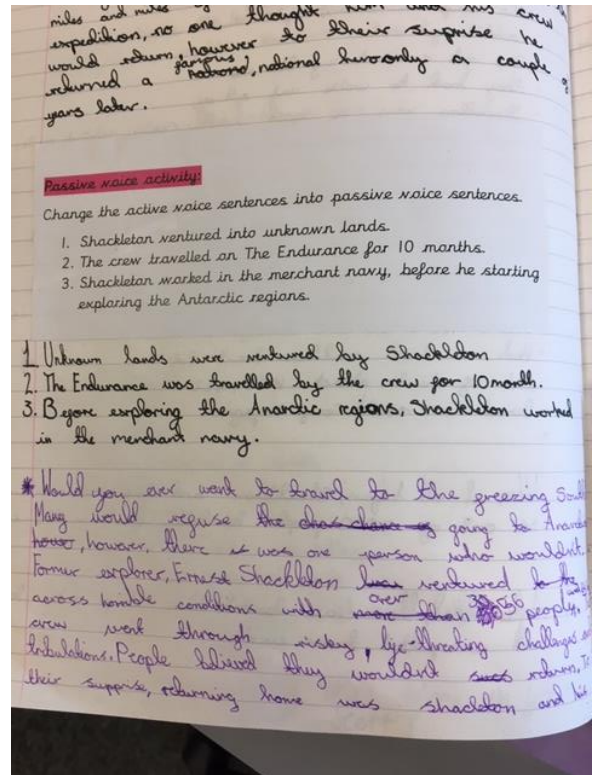 miles and miles
expedition, no one thought him and his crew
would return, however to their suprise he
returned a famous, national hero only a couple of
years later.
Passive voice activity:
Change the active voice sentences into passive voice sentences.
1. Shackleton ventured into unknown lands.
2. The crew travelled on The Endurance for 10 months.
3. Shackleton worked in the merchant navy, before he starting
exploring the Antarctic regions.
1 Unknown lands were ventured by Shackldton
2. The Endurance was travelled by the crew for 10 month.
3. Before exploring the Anardic regions, Shackleton worked
in the merchant navy.
* Would you ever want to travel to the freezing South
Many would refuse the going to
however, there was one person who wouldn't.
Former explorer, Ernest Shackleton ventured
across horrible conditions with over 56 people,
crew went through risky, life-threating challenges
tribulations. People believed they wouldnt return, To
their supprise, returning home was shackleton and his